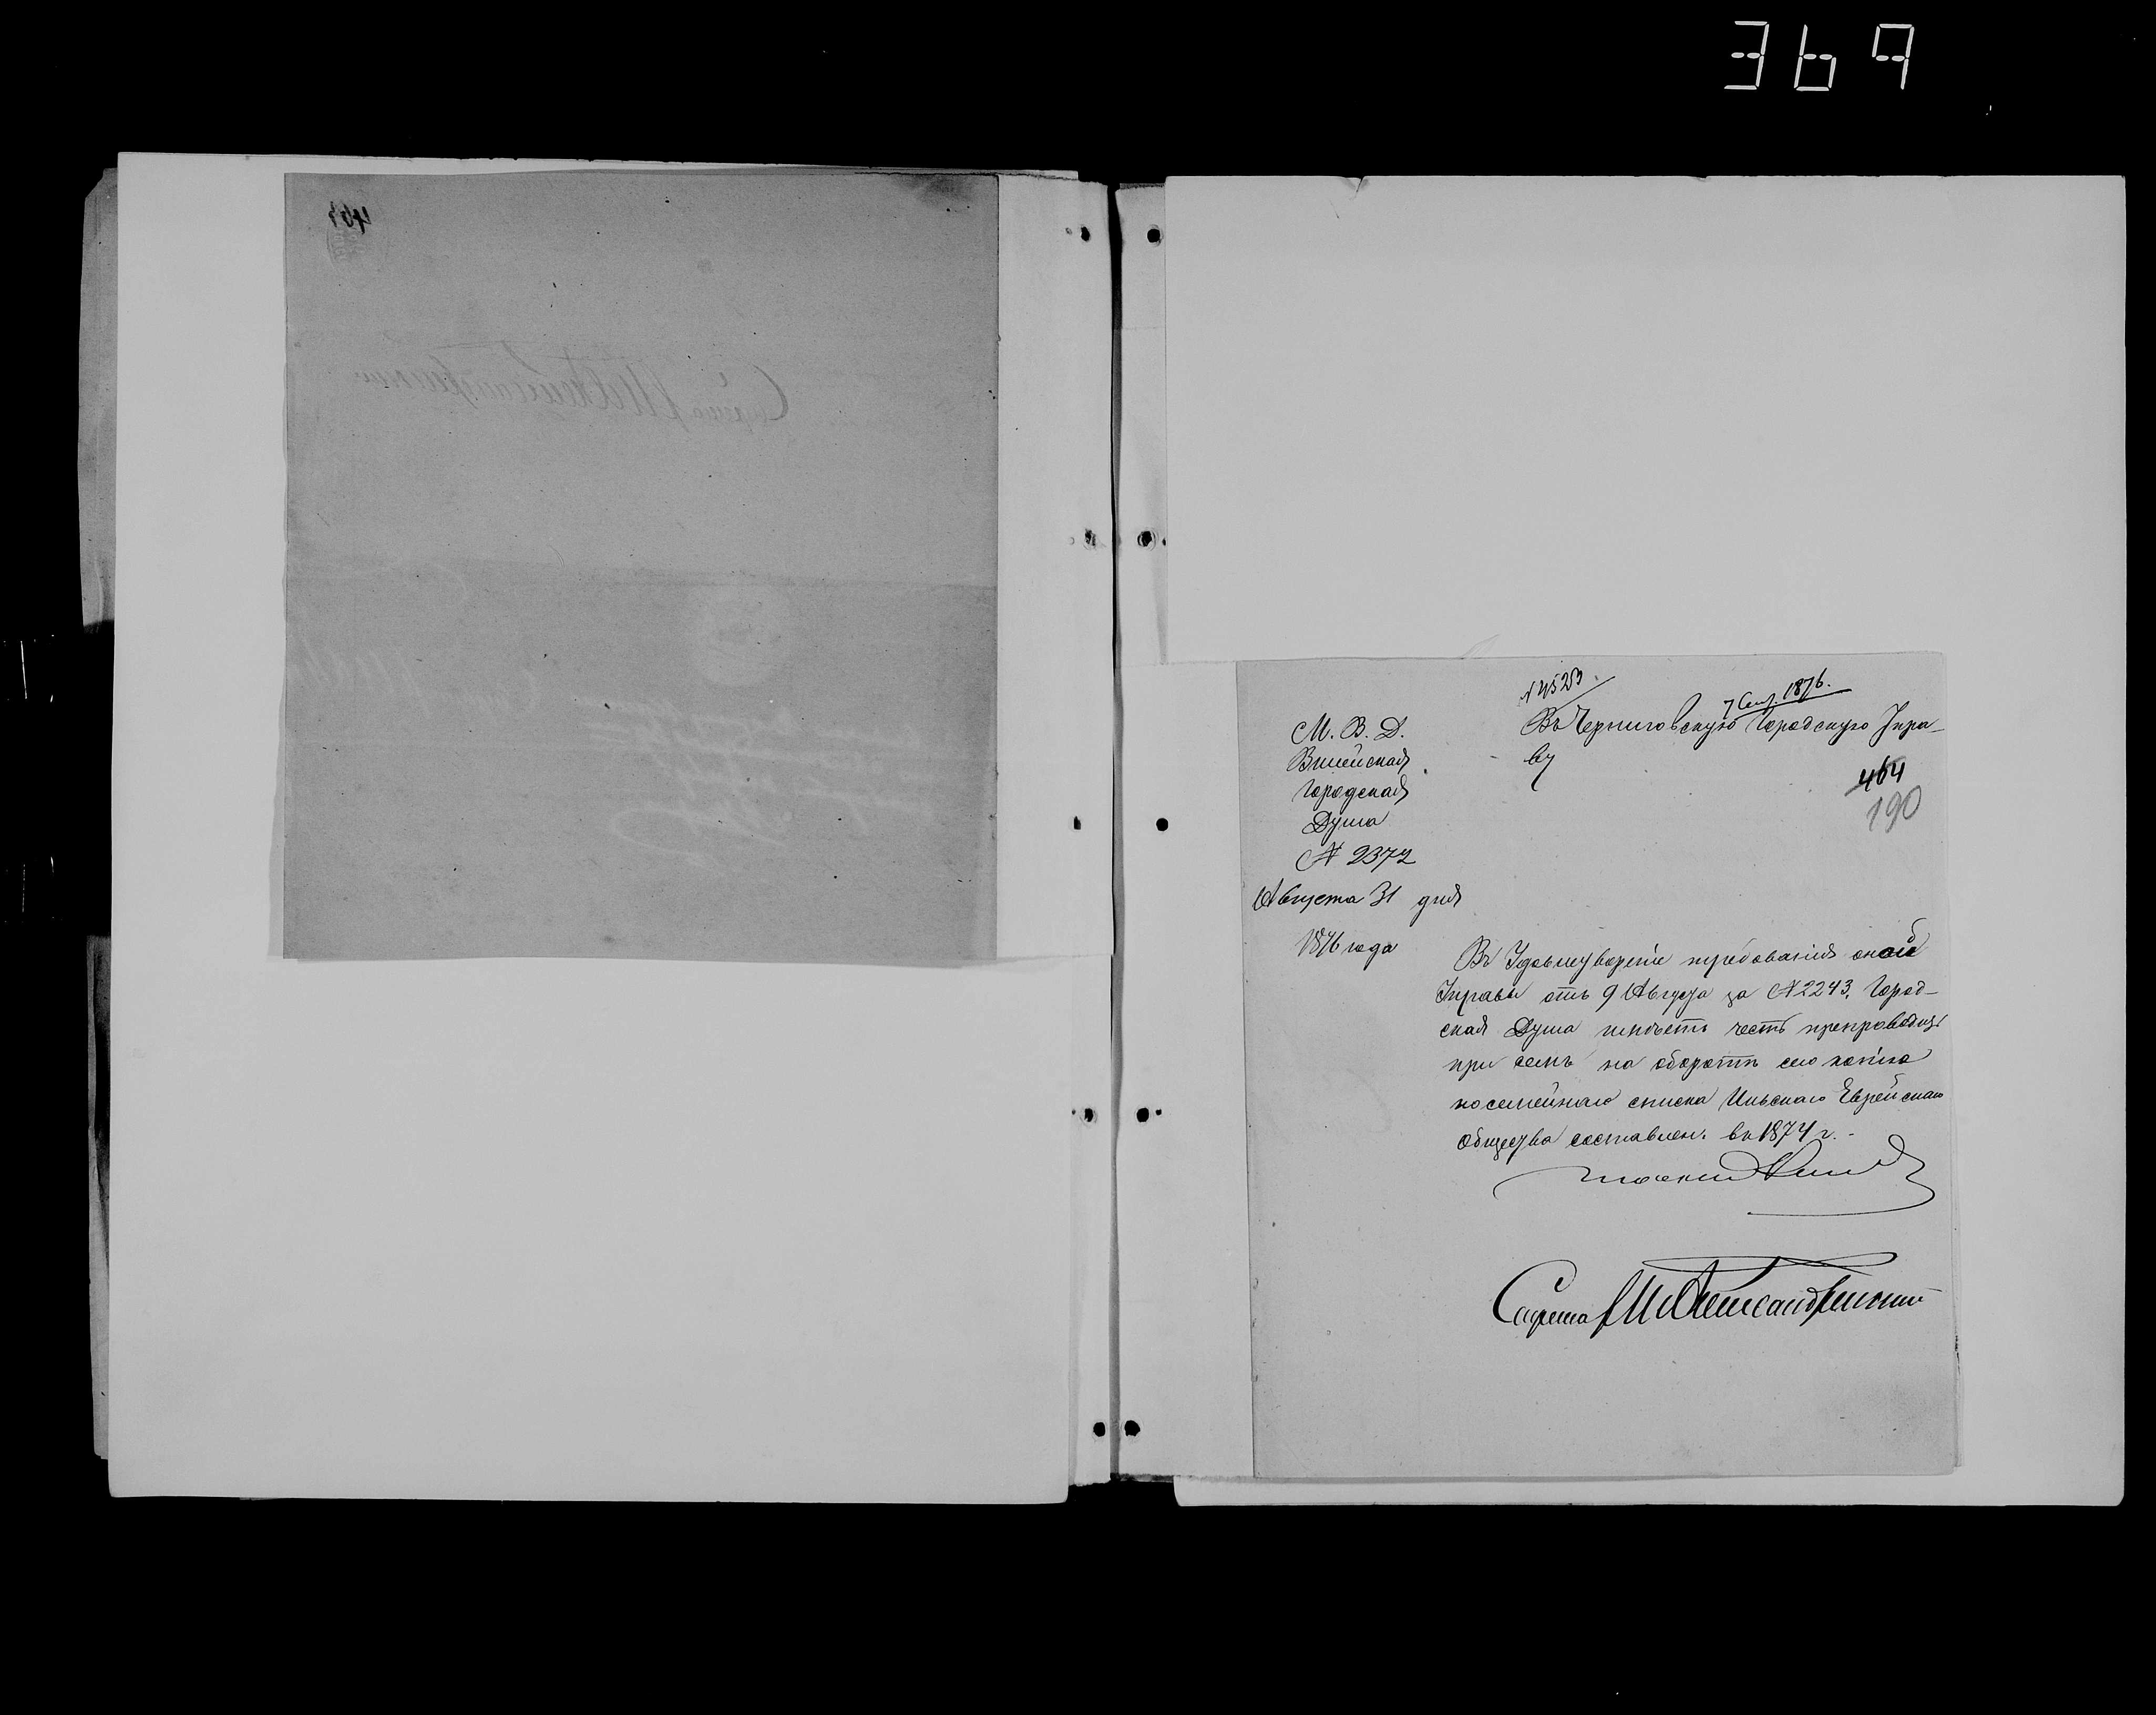 369
№ 4525
7 Сен. 1876.
М. В. Д.
Вилейская
Городская
Дума
№ 2372
Августа 31 дня
1876 года
Въ Черниговскую Городскую Упра-
ву
464
190
Въ Удовлетвореніе требованія оной
Управы отъ 9 Августа за № 2243, Город-
ская Дума имѣетъ честь препроводить
при семъ на оборотѣ сего копію
посемейнаго списка Ильскаго Еврейскаго
Общества составлен. въ 1874 г.